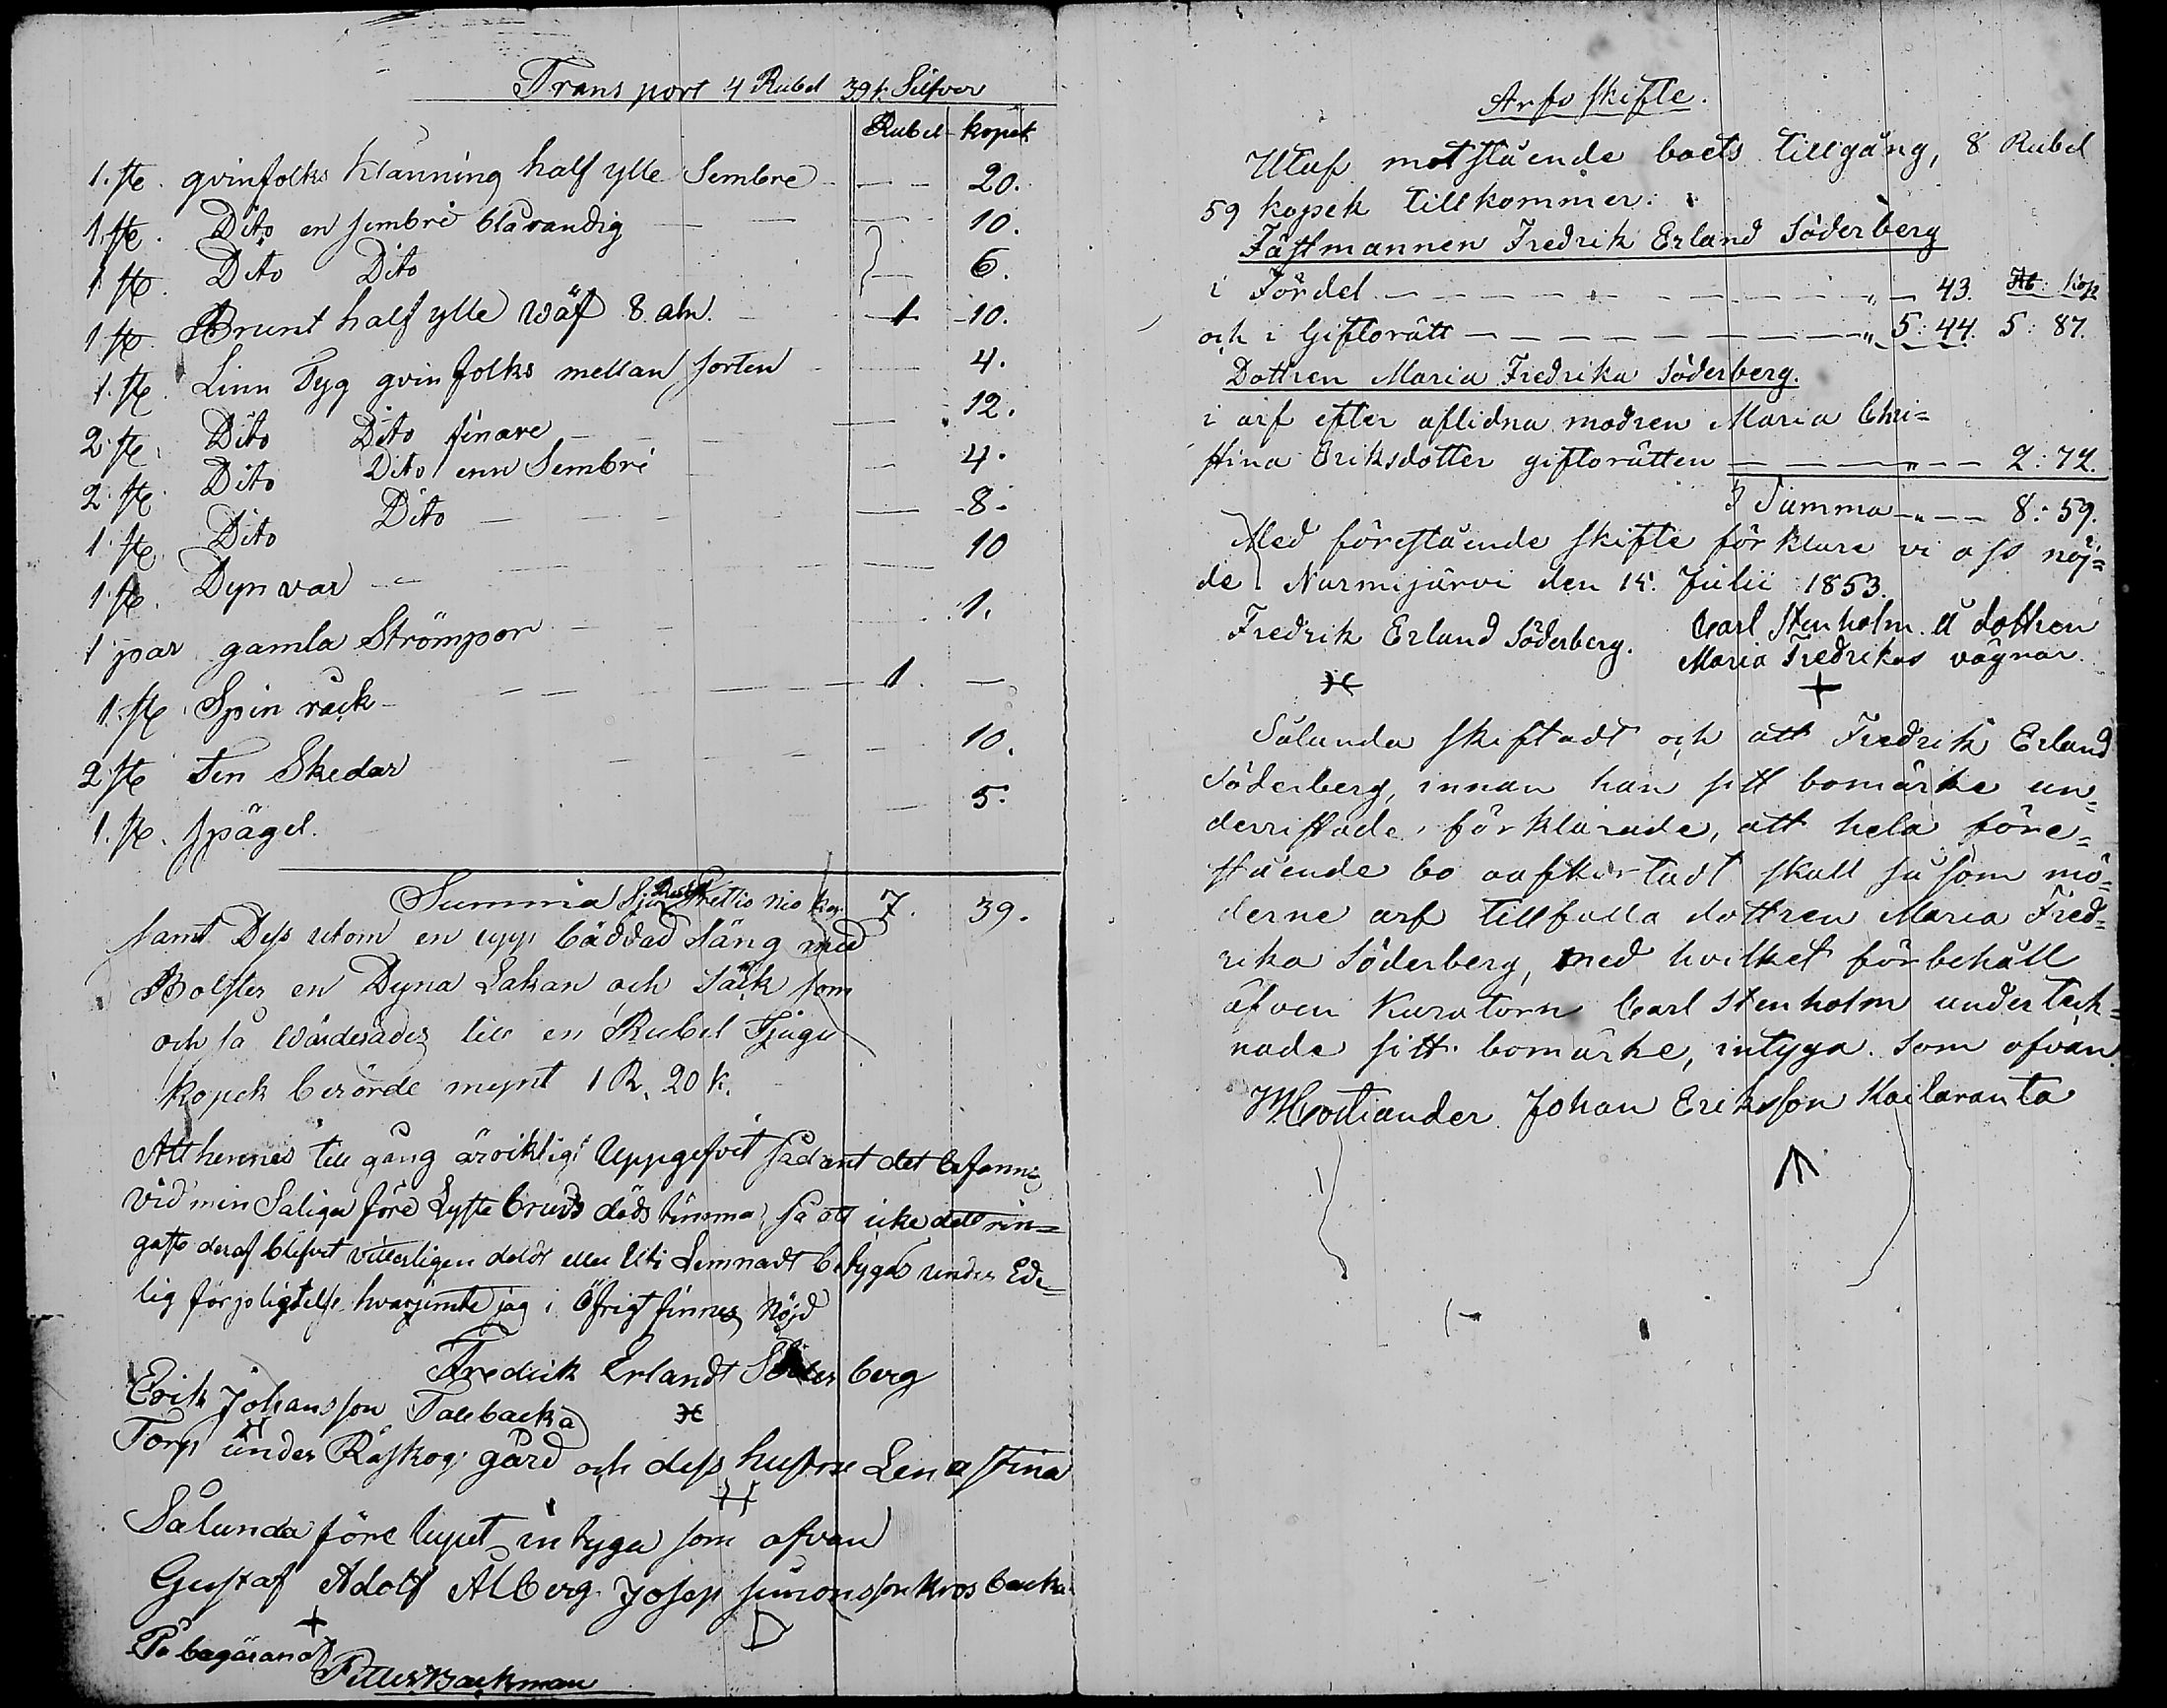 Trans port 4 Rubel 39 k: Silfver
Rubel kopek
1. st. qvinfolks klänning half ylle Sembre — 20.
1. st. Dito en sembre blårandig — 10.
1 st. Dito Dito — 6.
1 st. Brunt half ylle wäf 8. aln. 1 10.
1. st. Linn Tyg qvinfolks mellan sorten — 4.
2 st. Dito Dito finare — 12.
2 st. Dito Dito enn Sembre — 4.
1 st. Dito Dito — 8.
1 st. Dyn var — 10
1 par gamla Strömpor — 1.
1. st. Spin råck — 1. —
2 st. Ten Skedar — 10.
1. st. spägel. — 5.
Summa Sju Rubel Trettio nio kop. 7. 39.
samt Dess utom en upp bäddad Säng med
Bolster en Dyna Lakan och Säck som
och så wärderades till en Rubel Tjugu
kopek berörde mynt 1 R. 20 k.
Att hennes till gång är riktigt Uppgifvit sådant det befanns
vid min Saliga före Lyste bruds döds timma, så att icke det rin=
gaste deraf blifvit vetterligen doldt eller Uti Lemnadt betygas under Ede=
lig förpligtelse hvarjemte jag i Öfrigt finnes Nöjd
Fredrik Erlandt Söderberg
Erik Johansson Tallbacka
Torp under Råskog gård och dess hustru Lena Stina
Sålunda före lupet intyga som ofvan
Gustaf Adolf Alberg. Josep Simonsson Krosbacka
På begäran af
Petter Backman
Arfs skifte.
Utaf motstående boets tillgång, 8 Rubel
59 kopek tillkommer:
Fästmannen Fredrik Erland Söderberg
i Fördel — — — 43. Rb: kop
och i Giftorätt — — — 5: 44. 5: 87.
Dottren Maria Fredrika Söderberg.
i arf efter aflidna modren Maria Chri=
stina Eriksdotter giftorätten — — — 2: 72.
Summa — — 8: 59.
Med förestående skifte förklare vi oss nöj=
de Nurmijärvi den 15. Julii 1853.
Fredrik Erland Söderberg. Carl Stenholm. å dottren
Maria Fredrikas vägnar.
Sålunda skiftadt och att Fredrik Erland
Söderberg, innan han sitt bomärke un=
derristade, förklarade, att hela före=
stående bo oafkortadt skall såsom mö=
derne arf tillfalla dottren Maria Fred=
rika Söderberg, med hvilket förbehåll
äfven Kuratorn Carl Stenholm underteck=
nade sitt bomärke, intyga. Som ofvan.
Johan Eriksson Kailaranta